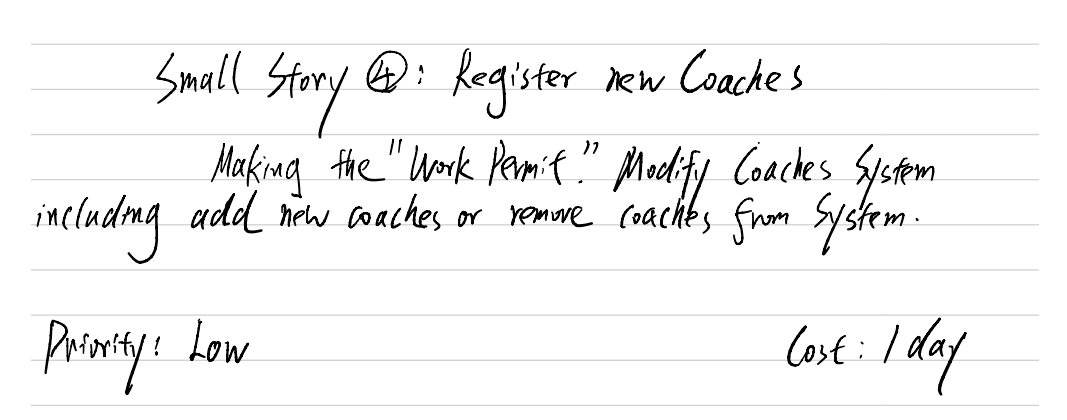 Small Story ④: Register new Coaches
Making the "Work Permit." Modify Coaches System
including add new coaches or remove coaches from System.
Priority: Low
Cost: 1 day